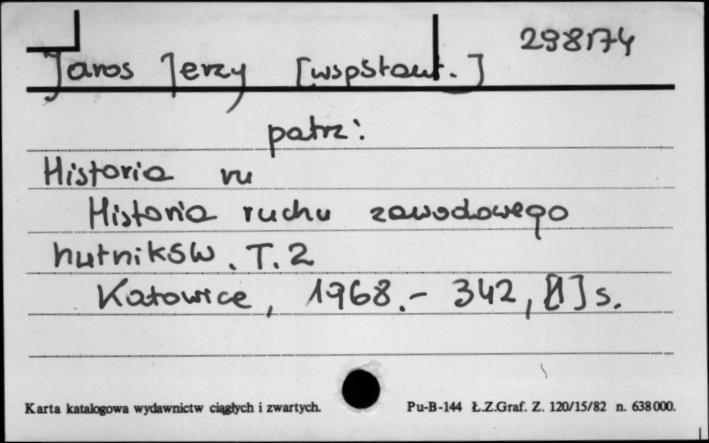 298174
Jaros Jerzy [współaut.]
patrz:
Historia ru
Historia ruchu zawodowego
hutników. T. 2
Katowice, 1968.- 342, [1] s.
Karta katalogowa wydawnictw ciągłych i zwartych. Pu-B-144 Ł.Z.Graf. Z. 120/15/82 n. 638000.